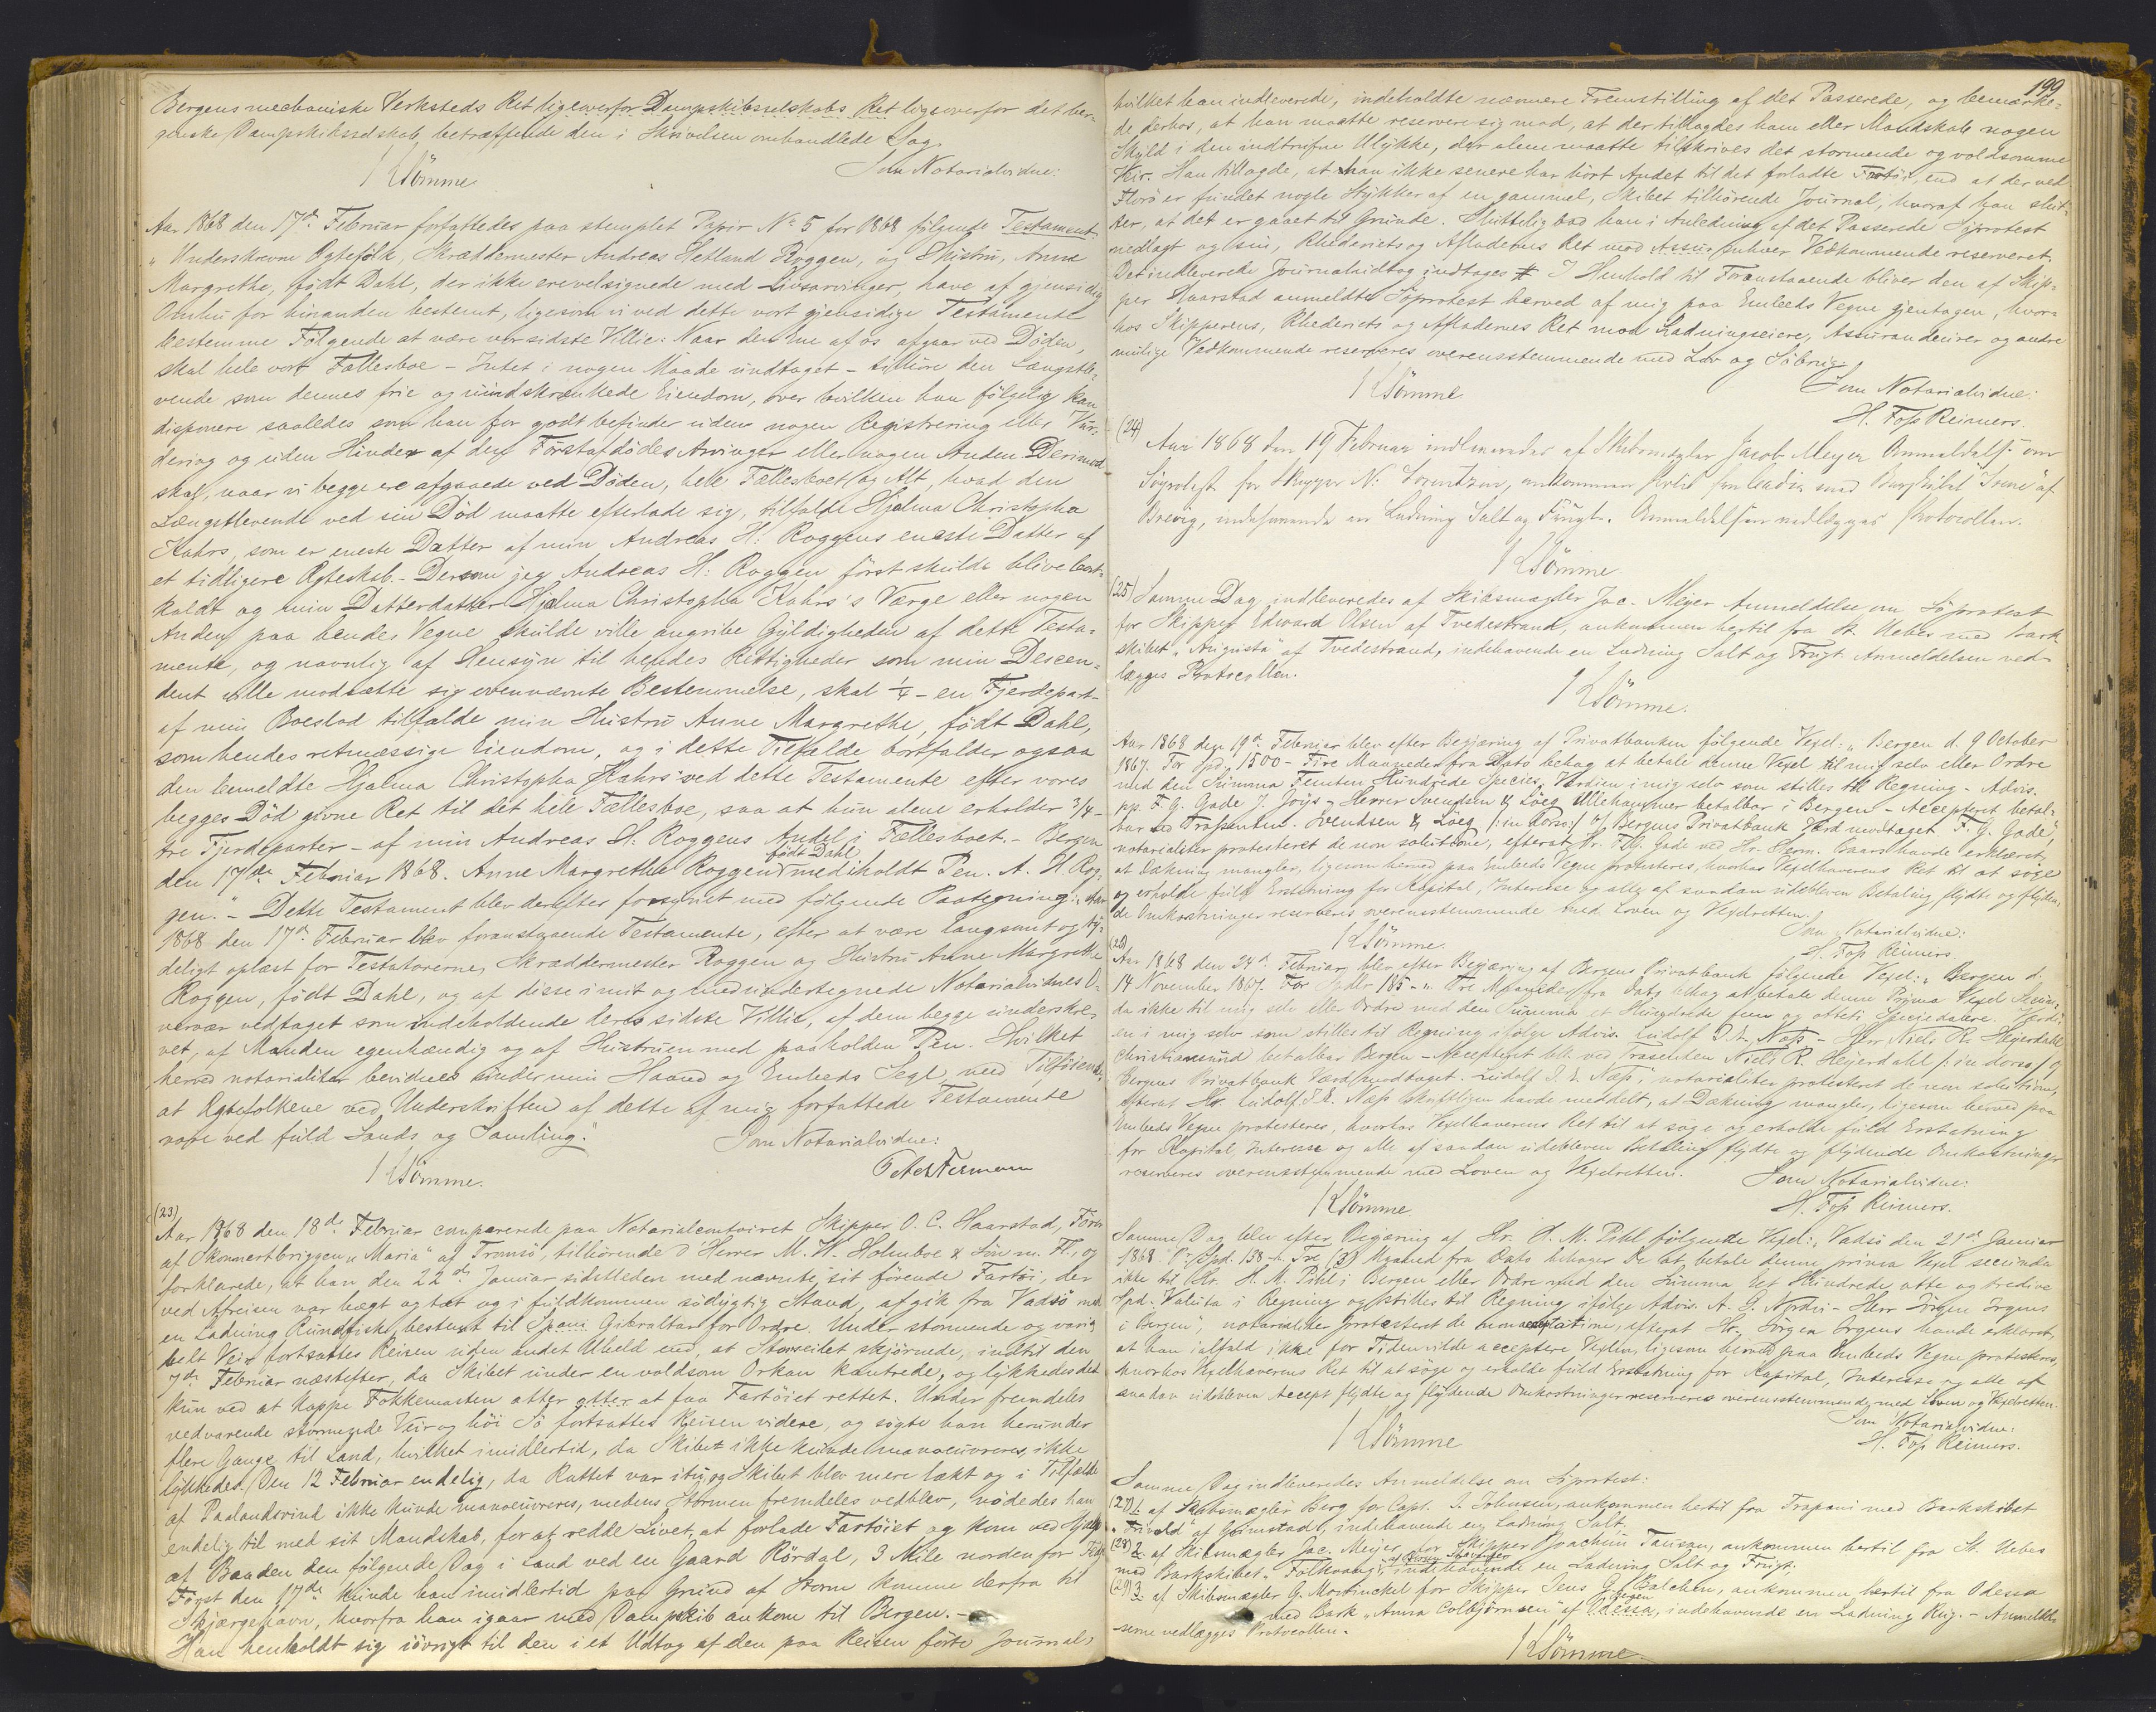 Bergens mechaniske Verksteds Ret ligeoverfor Dampskibsselskabs Ret ligeoverfor det ber-
genske Dampskibsselskab, betræffende den i Skrivelsen omhandlede Sag.
Som Notarialvidne:
KSömme
Aar 1868 den 17de Februar forfattedes paa stemplet Papir No 5 for 1868 følgende Testament.
"Underskrevne Ægtefolk, Skræddermester Andreas Hetland Roggen, og Hustru, Anne
Margrethe, født Dahl, der ikke ere velsignede med Livsarvinger, have af gjensidig
Omhu for hinanden bestemt, ligesom vi ved dette vort gjensidige Testamente
bestemme Følgende at være vor sidste Villie: Naar den Ene af os afgaar ved Döden,
skal hele vort Fællesboe - Intet i nogen Maade undtaget - tilhøre den Længstle-
vende som dennes frie og uindskrænkede Eiendom, over hvilken han følgelig kan
disponere saaledes som han for godt befinder uden nogen Registrering eller Vur-
dering og uden Hinder af den Førstafdødes Arvinger eller nogen Anden. Derimod
skal, naar vi begge ere afgaaede ved Döden, hele Fællesboet og Alt, hvad den
Længstlevende ved sin Död maatte efterlade sig, tilfalde Hjalma Christopha
Kahrs, som er eneste Datter af min Andreas H: Roggens eneste Datter af
et tidligere Ægteskab. - Dersom jeg Andreas H: Roggen først skulde blive bort-
kaldt og min Datterdatter Hjalma Christopha Kahrs's Værge eller nogen
Anden paa hendes Vegne skulde ville angribe Gyldigheden af dette Testa-
mente, og navnlig af Hensyn til hendes Rettigheder som min Descen-
dent ville modsætte sig ovennævnte Bestemmelse, skal 1/4 - en Fjerdepart -
af min Boeslod tilfalde min Hustru Anne Margrethe, født Dahl,
som hendes retmæssige Eiendom, og i dette Tilfælde bortfalder ogsaa
den bemeldte Hjalma Christopha Kahrs ved dette Testamente efter vores
begges Död givne Ret til det hele Fællesboe, saa at hun alene erholder 3/4 -
tre Fjerdeparter - af min Andreas H. Roggens Andel i Fællesboet. - Bergen
den 17de Februar 1868. Anne Margrethe Roggen født Dahl med iholdt Pen. A. H. Rog-
gen." - Dette Testament blev derefter forsynet med følgende Paategning: "Aar
1868 den 17de Februar blev foranstaaende Testamente, efter at være langsomt og ty-
deligt oplæst for Testatorerne, Skræddermester Roggen og Hustru Anne Margrethe
Roggen, født Dahl, og af disse i mit og medundertegnede Notarialvidnes O-
vervær vedtaget som indeholdende deres sidste Villie, af dem begge underskre-
vet, af Manden egenhændig og af Hustruen med paaholden Pen. Hvilket
herved notarialiter bevidnes under min Haand og Embeds Segl, med Tilføiende,
at Ægtefolkene ved Underskriften af dette af mig forfattede Testamente
vare ved fuld Sands og Samling."
Som Notarialvidne:
KSömme.
(23)
Aar 1868 den 18de Februar comparerede paa Notarialcontoiret Skipper O. C. Haarstad, Förer
af Skonnertbriggen "Maria" af Tromsö, tilhørende d'Herrer M. W. Holmboe & Søn m. Fl., og
forklarede, at han den 22de Januar sidstleden med nævnte, sit førende Fartøi, der
ved Afreisen var tægt og tæt og i fuldkommen södygtig Stand, afgik fra Vadsö med
en Ladning Rundfisk, bestemt til Spani Gibraltar for Ordre. Under stormende og varia-
belt Veir fortsattes Reisen uden andet Uheld end, at Storseilet skjørnede, indtil den
7de Februar næstefter, da Skibet under en voldsom Orkan kantrede, og lykkedes det
kun ved at kappe Fokkemasten atter at faa Fartøiet rettet. Under fremdeles
vedvarende stormende Veir og høi Sö fortsattes Reisen videre, og søgte han herunder
flere Gange til Land, hvilket imidlertid, da Skibet ikke kunde manoeuvreres, ikke
lykkedes. Den 12 Februar endelig, da Rattet var itu, og Skibet blev mere lækt og i Tilfælde
af Paalandsvind ikke kunde manoeuvreres, medens Stormen fremdeles vedblev, nödedes han
endelig til med sit Mandskab, for at redde Livet, at forlade Fartøiet og kom ved Hjælp
af Baaden den følgende Dag i Land ved en Gaard Rördal, 3 Mile norden for
Først den 17de kunde han imidlertid paa Grund af Storm komme derfra til
Skjærgehavn, hvorfra han igaar med Dampskib ankom til Bergen. -
Han henholdt sig iövrigt til den i et Udtog af den paa Reisen førte Journal,
199
hvilket han indleverede, indeholdte nærmere Fremstilling af det Passerede, og bemærke-
de derhos, at han maatte reservere sig mod, at der tillagdes ham eller Mandskab nogen
Skyld i den indtrufne Ulykke, der alene maatte tilskrives det stormende og voldsomme
Veir. Han tillagde, at han ikke senere har hört Andet til det forladte Fartøi, end at der ved
Florö er fundet nogle Stykker af en gammel, Skibet tilhørende Journal, hvoraf han slut-
ter, at det er gaaet til Grunde. Sluttelig bad han i Anledning af det Passerede Söprotest
nedlagt og sin, Rhederiets og Afladernes Ret mod Assuranten Vedkommende reserveret.
Det indleverede Journaludtog indtages # I Henhold til Foranstaaende bliver den af Skip-
per Haarstad anmeldte Söprotest herved af mig paa Embeds Vegne gjentagen, hvor-
hos Skipperens, Rhederiets og Afladernes Ret mod Ladningseiere, Assurandeurer og andre
mulige Vedkommende reserveres overensstemmende med Lov og Söbrug.
Som Notarialvidne:
KSömme
H. Foss Reimers.
(24)
Aar 1868 den 19 Februar indleveredes af Skibsmægler Jacob Meyer Anmeldelse om
Söprotest for Skipper N: Lorentzen, ankommen hertil fra Cadix med Bargskibet "Irene" af
Brevig, indehavende en Ladning Salt og Frugt. Anmeldelsen vedlægges Protocollen.
KSömme
(25) Samme Dag indleveredes af Skibsmægler Jac. Meyer Anmeldelse om Söprotest
for Skipper Edward Olsen af Tvedestrand, ankommen hertil fra St. Uebes med Bark-
skibet "Augusta" af Tvedestrand, indehavende en Ladning Salt og Frugt. Anmeldelsen ved-
lægges Protocollen.
KSömme.
Aar 1868 den 19de Februar blev efter Begjæring af Privatbanken følgende Vexel: "Bergen d. 9 October
1867. For Spd. 1500 - Fire Maaneder fra Dato behag at betale denne Vexel til mig selv eller Ordre
med den Summa Femten Hundrede Species, Værdien i mig selv som stilles til Regning - Advis.
pp. F. G. Gade J. Herrer Svendsen & Löeg Ullehammer betalbar i Bergen - Accepteret betal-
bar ved Trassenten. Svendsen & Löeg /: in dorso :/ Bergens Privatbank Værd modtaget. F. G. Gade",
notarialiter protesteret de non solutione, efterat Hr. F. G. Gade ved Hr. Herm. Baars havde erklæret,
at Dækning mangler, ligesom herved paa Embeds Vegne protesteres, hvorhos Vexelhaverens Ret til at søge
og erholde fuld Erstatning for Kapital, Interesse og alle af saadan udebleven Betaling flydte og flyden-
de Omkostninger reserveres overensstemmende med Loven og Vexelretten.
Som Notarialvidne:
KSömme.
H. Foss Reimers.
(26)
Aar 1868 den 24de Februar blev efter Begjæring af Bergens Privatbank følgende Vexel: "Bergen d.
14 November 1867. For Spdlr 185 - " Tre Maaneder fra Dato behag at betale denne Prima Vexel Secun-
da ikke til mig selv eller Ordre med den Summa et Hundrede fem og otteti Speciedalere. Værdi-
en i mig selv som stilles til Regning ifølge Advis. Ludolf D. E. Næss - Herr Niels R. Heyerdahl
Christiansund betalbar Bergen - Accepteret ved Trasenten Niels R. Heyerdahl /: in dorso :/
Bergens Privatbank Værd modtaget. Ludolf D. E. Næss", notarialiter protesteret de non solutione,
efterat Hr. Ludolf D. E. Næss skriftligen havde meddelt, at Dækning mangler, ligesom herved paa
Embeds Vegne protesteres, hvorhos Vexelhaverens Ret til at søge og erholde fuld Erstatning
for Kapital, Interesse og alle af saadan udebleven Betaling flydte og flydende Omkostninger
reserveres overensstemmende med Loven og Vexelretten.
Som Notarialvidne:
KSömme
H. Foss Reimers.
Samme Dag blev efter Begjæring af Hr. H. M. Pihl følgende Vexel: "Vadsö den 21de Januar
1868 Spd. 138 - Tre (3) Maaned fra Dato behager De at betale denne prima Vexel secunda
ikke til Hr. H. M. Pihl i Bergen eller Ordre med den Summa Et Hundrede otte og tredive
Spd. Valuta i Regning og stilles til Regning ifølge Advis. A. G. Nordvi - Herr Jörgen Irgens
i Bergen", notarialiter protesteret de non acceptatione, efterat Hr. Jörgen Irgens havde erklæret,
at han ialfald ikke for Tiden vilde acceptere Vexlen, ligesom herved paa Embeds Vegne protesteres,
hvorhos Vexelhaverens Ret til at søge og erholde fuld Erstatning for Kapital, Interesse og alle af
saadan udebleven Accept flydte og flydende Omkostninger reserveres overensstemmende med Loven og Vexelretten.
Som Notarialvidne:
KSömme
H. Foss Reimers.
Samme Dag indleveredes Anmeldelse om Söprotest:
(27) 1. af Skibsmægler Berg for Capt. J. Johnsen, ankommen hertil fra Trapani med Barkskibet
af Grimstad, indehavende en Ladning Salt,
(28) 2. af Skibsmægler Jac. Meyer for Skipper Joachim Tausan, ankommen hertil fra St. Uebes
med Barkskibet "Folkvang", indehavende en Ladning Salt og Frugt,
(29) 3. af Skibsmægler G. Mowinckel for Skipper Jens G. Balchen, ankommen hertil fra Odessa
med Bark "Anna Colbjörnsen" af Bergen Odessa, indehavende en Ladning Rug. - Anmeldel-
serne vedlægges Protocollen.
KSömme.